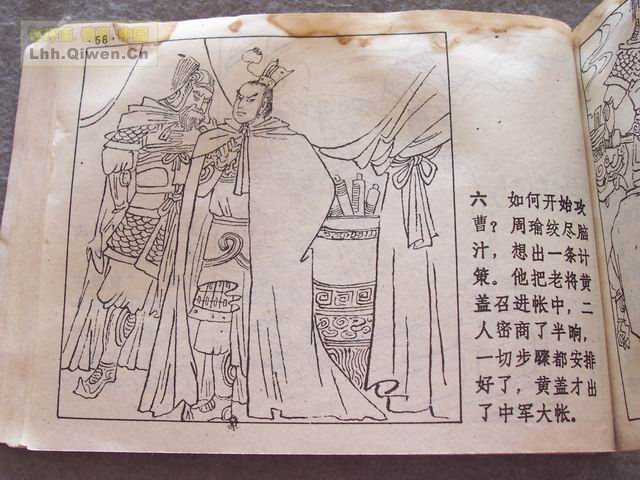 ·56·
Lhh.Qiwen.Cn
六　如何开始攻
曹？周瑜绞尽脑
汁，想出一条计
策。他把老将黄
盖召进帐中，二
人密商了半晌，
一切步骤都安排
好了，黄盖才出
了中军大帐。